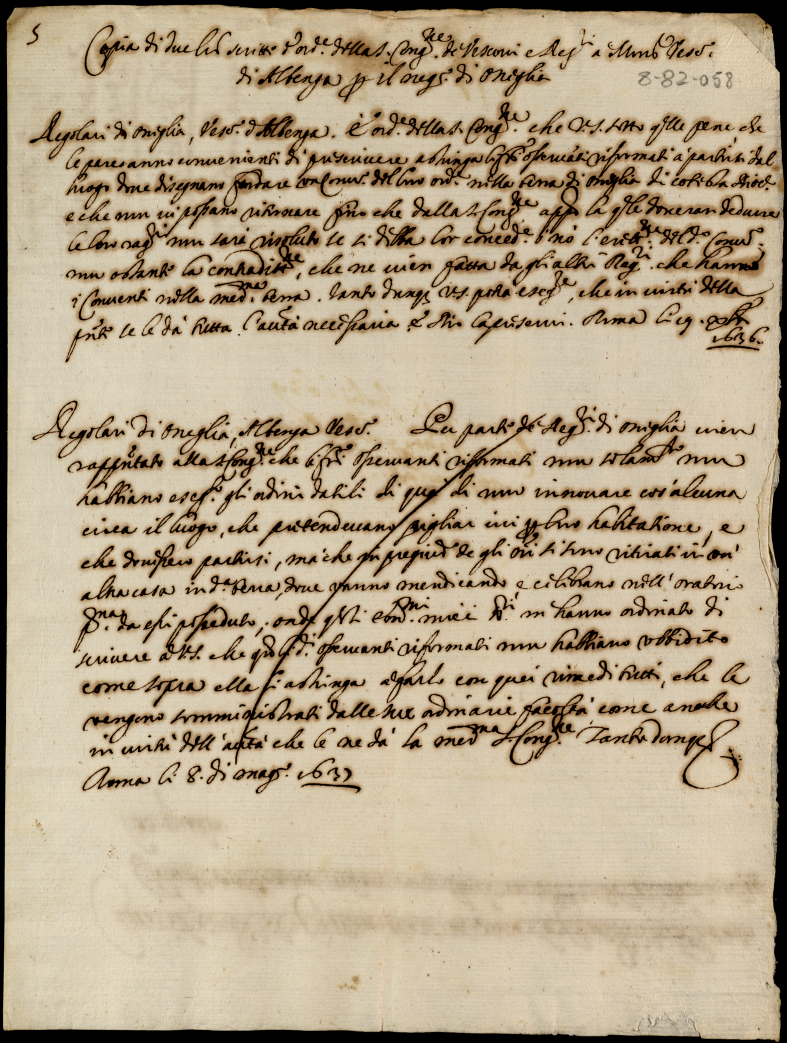 5
Copia di due lre scritte d'ord.e della S. Cong.ne de Vescovi e Reg.ri a Mons.r Vesc.o
di Albenga p il neg.o di Oneglia
8-82-058
Regolari di Oniglia, Vesc.o d'Albenga. È ord.e della S. Cong.ne che V.S. sotto q.lle pene, che
le pareranno convenienti di prescrivere astringa li fri osservanti riformati a partirsi dal
luogo dove disegnano fondare un Conv.to del loro ord.e nella terra di Oneglia di cotesta Dioc.e
e che non vi possano ritornare fino che dalla S. Cong.ne app.o la q.le doveran dedurre
le loro rag.ni non sarà risoluto se si debba lor conced.e o no l'erett.ne del d.o Conv.to
non ostante la contradict.ne, che ne vien fatta da gli altri Reg.ri che hanno
i Conventi nella med.ma terra. Tanto dunq. V.S. potrà eseg.re, che in virtù della
pnte se le dà tutta l'autà necessaria Roma li 19 xbre
1636.
Regolari di Oneglia, Albenga Vesc.o Per parte de Reg.ri di Oniglia vien
rappntato alla S. Cong.ne che li fri osservanti riformati non solam.te non
habbiano eseg.to gli ordini datili di quei di non innovare cos'alcuna
circa il luogo, che pretendevano pigliar ivi p loro habitatione, e
che dovessero partirsi, ma che in pregiud.o de gli ori si sono ritirati in un'
altra casa in d.a terra, dove vanno mendicando e celibrano nell'oratorio
p.ma da essi posseduto, onde q.sti Em.mi miei SS.ri m'hanno ordinato di
scrivere a V.S. che q.do li d.i osservanti riformati non habbiano ubbidito
come sopra ella li astringa a farlo con quei rimedi tutti, che le
vengono somministrati dalle sue ordinarie facoltà come anche
in virtù dell'autà che le ne dà la med.ma S. Cong.ne Tanto dunq.
Roma li 8. di mag.o 1637